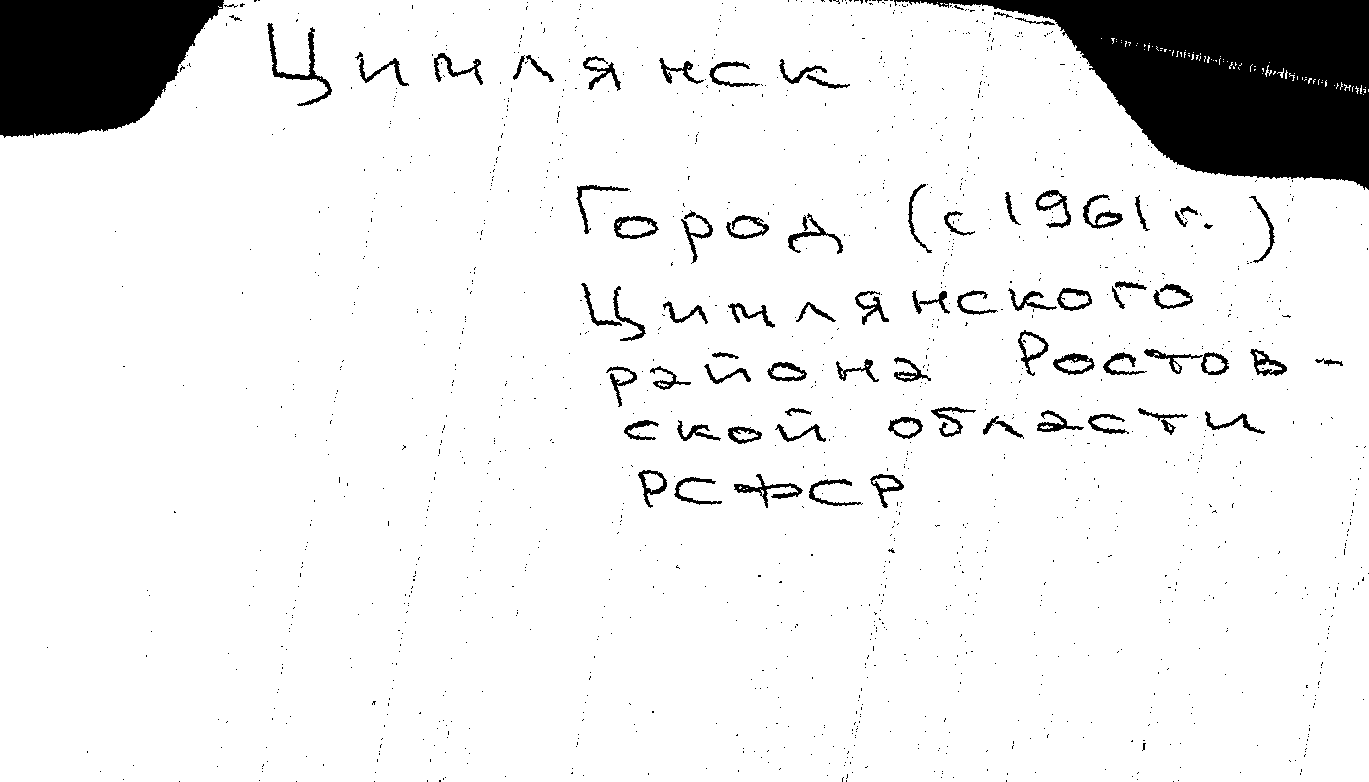 Цимлянск
Город (с 1961 г.)
Цимлянского
района Ростов-
ской области
РСФСР